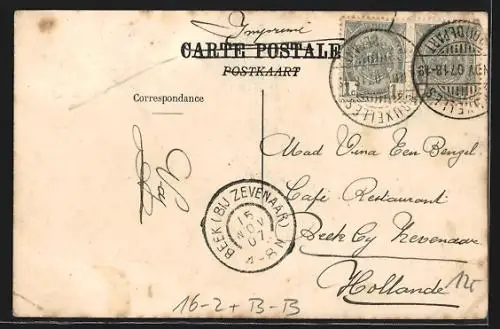 Imprimé
CARTE POSTALE
POSTKAART
Correspondance
Mad Vina Ten Bengel
Café Restaurant
Beek by Zevenaar
Hollande
BEEK (BIJ ZEVENAAR)
15
NOV
07
4-8N
1c
BRUXELLES
NOV 07 18-19
DEPART
16-2 + B-B